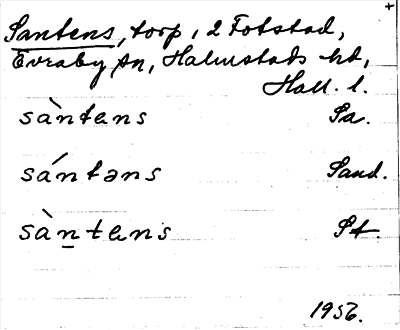 Santens, torp, 2 Fotstad,
Evraby sn, Halmstads hd,
Hall. l.
sàntens Sa.
sántəns Sand.
sàṉtens St.
1956.